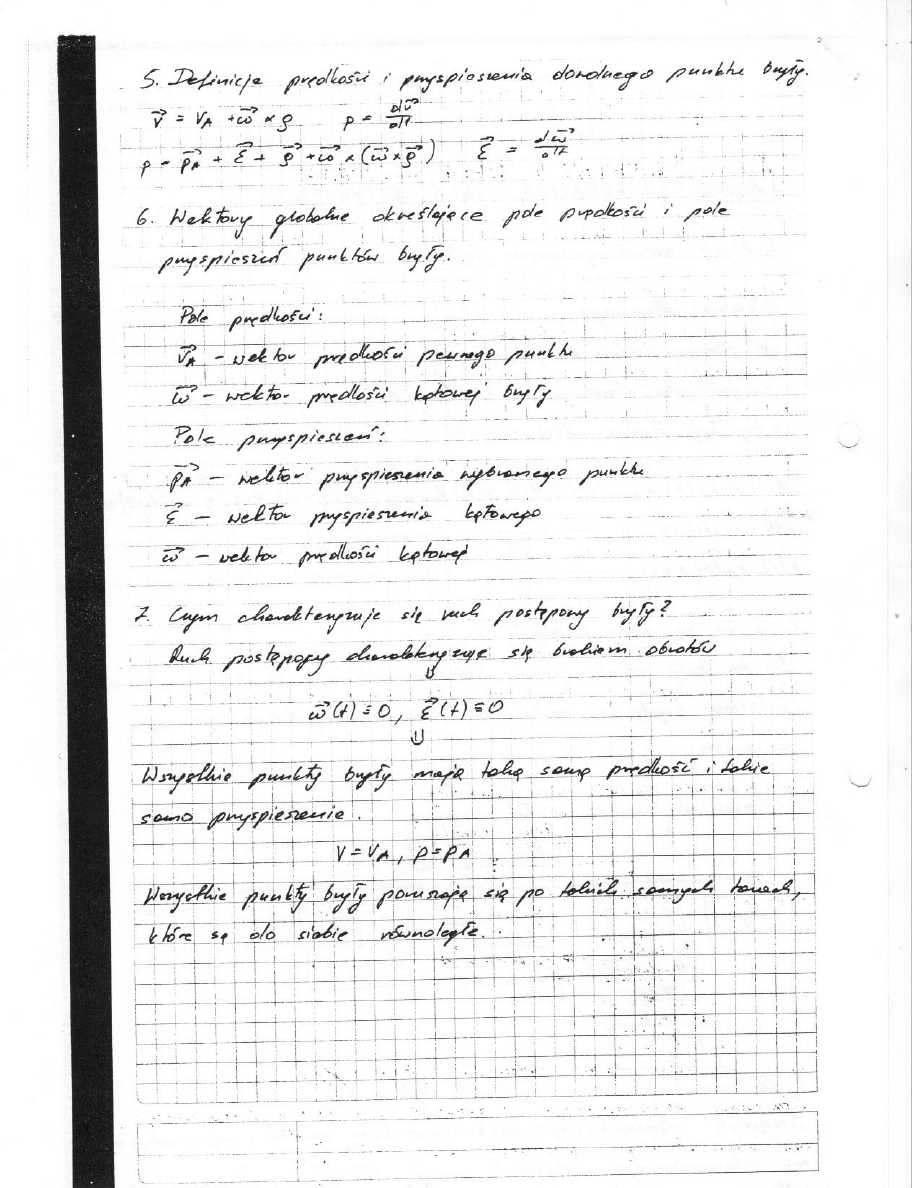 5. Definicja prędkości i przyspieszenia dowolnego punktu bryły.
v⃗ = V_A + ω⃗ × ρ    p = dv⃗/dt
p = p⃗_A + ε⃗ + ρ⃗ + ω⃗ × (ω⃗ × ρ⃗)    ε⃗ = dω⃗/dt
6. Wektory globalne określające pole prędkości i pole
przyspieszeń punktów bryły.
Pole prędkości:
v⃗_A – wektor prędkości pewnego punktu
ω⃗ – wektor prędkości kątowej bryły
Pole przyspieszeń:
p⃗_A – wektor przyspieszenia wybranego punktu
ε⃗ – wektor przyspieszenia kątowego
ω⃗ – wektor prędkości kątowej
7. Czym charakteryzuje się ruch postępowy bryły?
Ruch postępowy charakteryzuje się brakiem obrotów
⇓
ω⃗(t) ≡ 0, ε⃗(t) ≡ 0
⇓
Wszystkie punkty bryły mają taką samą prędkość i takie
samo przyspieszenie.
V = V_A, p = p_A
Wszystkie punkty bryły poruszają się po takich samych torach,
które są do siebie równoległe.